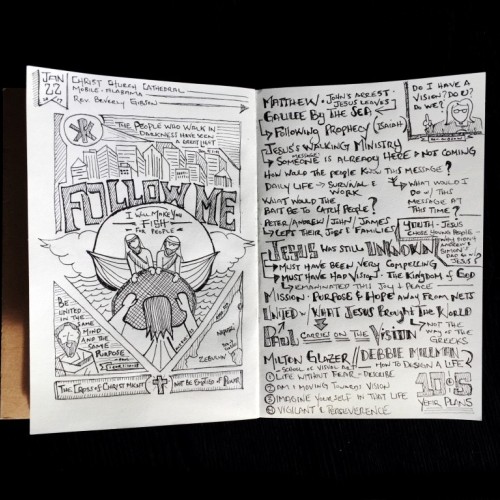 JAN
22
CHRIST CHURCH CATHEDRAL
MOBILE · ALABAMA
REV. BEVERLY GIBSON
THE PEOPLE WHO WALK IN
DARKNESS HAVE SEEN
A GREAT LIGHT
FOLLOW ME
I WILL MAKE YOU
FISH
FOR PEOPLE
BE
UNITED
IN THE
SAME
MIND
AND THE
SAME
PURPOSE
THE CROSS OF CHRIST MIGHT
NOT BE EMPTIED OF POWER
MATTHEW · JOHN'S ARREST ·
JESUS LEAVES
GALILEE BY THE SEA
FOLLOWING PROPHECY (ISAIAH)
JESUS'S WALKING MINISTRY
MESSAGE
SOMEONE IS ALREADY HERE NOT COMING
HOW WOULD THE PEOPLE KNOW THIS MESSAGE?
DAILY LIFE → SURVIVAL &
WORK
WHAT WOULD I
DO W/ THIS
MESSAGE AT
THIS TIME?
WHAT WOULD THE
BAIT BE TO CATCH PEOPLE?
PETER/ANDREW/JOHN/JAMES
LEFT THEIR JOBS & FAMILIES
DO I HAVE A
VISION? DO U?
DO WE?
YOUTH - JESUS
CHOSE YOUNG PEOPLE
WHY DIDN'T
ANDREW &
SIMON'S
DAD GO W/
JESUS?
JESUS WAS STILL UNKNOWN
MUST HAVE BEEN VERY COMPELLING
MUST HAVE HAD VISION - THE KINGDOM OF GOD
EMANINATED THIS JOY & PEACE
MISSION · PURPOSE & HOPE AWAY FROM NETS
UNITED W/ WHAT JESUS BROUGHT THE WORLD
PAUL CARRIES ON THE VISION
NOT THE
WAY OF THE
GREEKS
MILTON GLAZER / DEBBIE MILLMAN
SCHOOL OF VISUAL ART
HOW TO DESIGN A LIFE
① LIFE WITHOUT FEAR - DESCRIBE
② AM I MOVING TOWARDS VISION
③ IMAGINE YOURSELF IN THAT LIFE
④ VIGILANT & PERSEVERENCE
YEAR PLANS